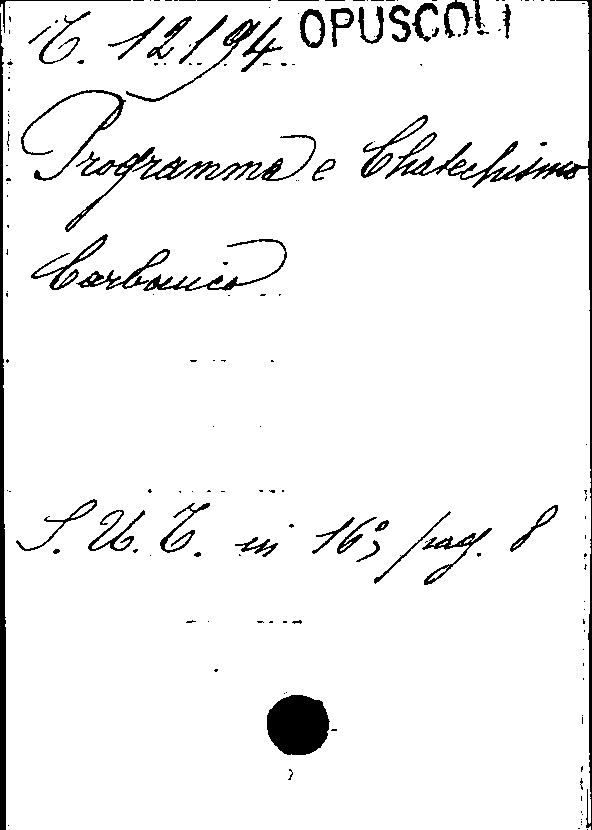 T. 12194 OPUSCOLI
Programma e Chatechismo
Carbonico
S. U. T. in 16º, pag. 8